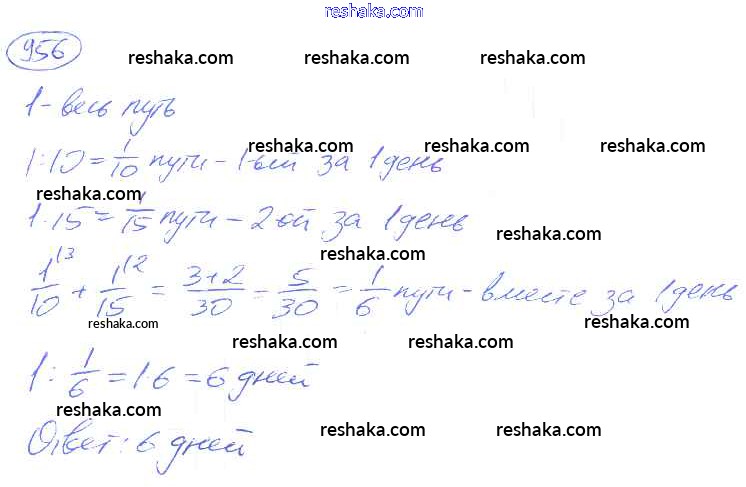 reshaka.com
956 reshaka.com reshaka.com reshaka.com
1 - весь путь
reshaka.com reshaka.com reshaka.com
1 : 10 = 1/10 пути - 1-ый за 1 день
reshaka.com
1 · 15 = 1/15 пути - 2-ой за 1 день
reshaka.com reshaka.com
1/10 ⁽³ + 1/15 ⁽² = (3+2)/30 = 5/30 = 1/6 пути - вместе за 1 день
reshaka.com reshaka.com
reshaka.com reshaka.com
1 : 1/6 = 1 · 6 = 6 дней
reshaka.com
Ответ: 6 дней
reshaka.com reshaka.com